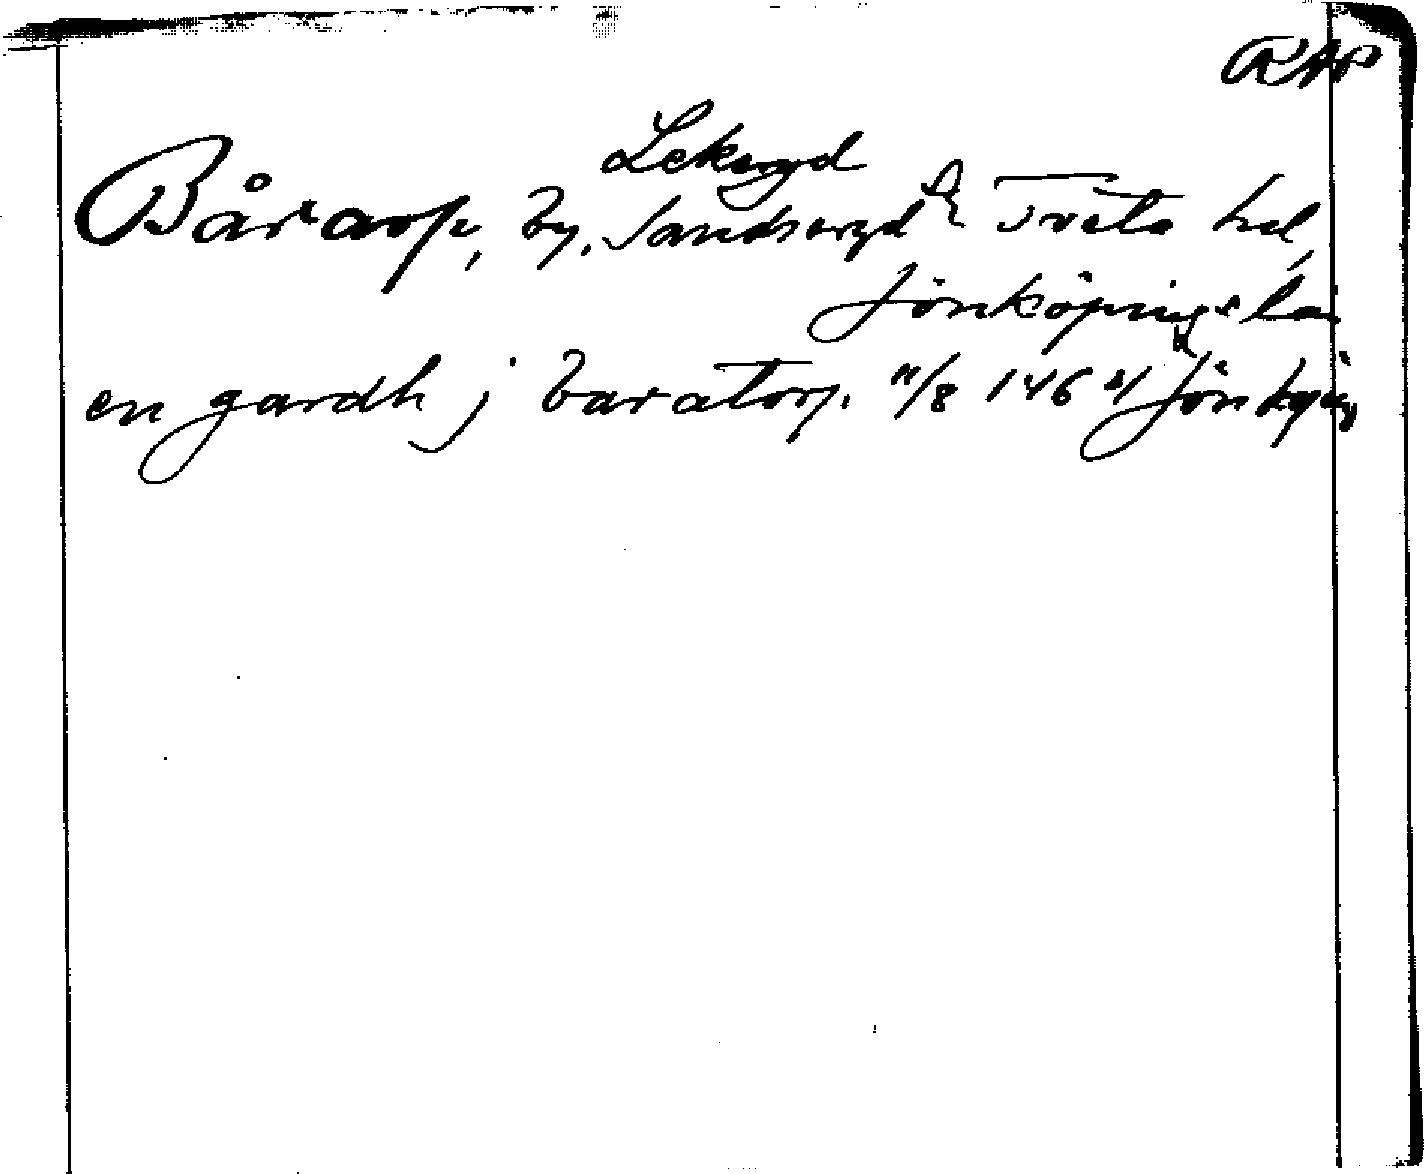 RAP
Lekeryd
Bårarp, by. Sandseryd sn Tveta hd,
Jönköpings län
en gardh j baratorp. 11/8 1461 Jönköping